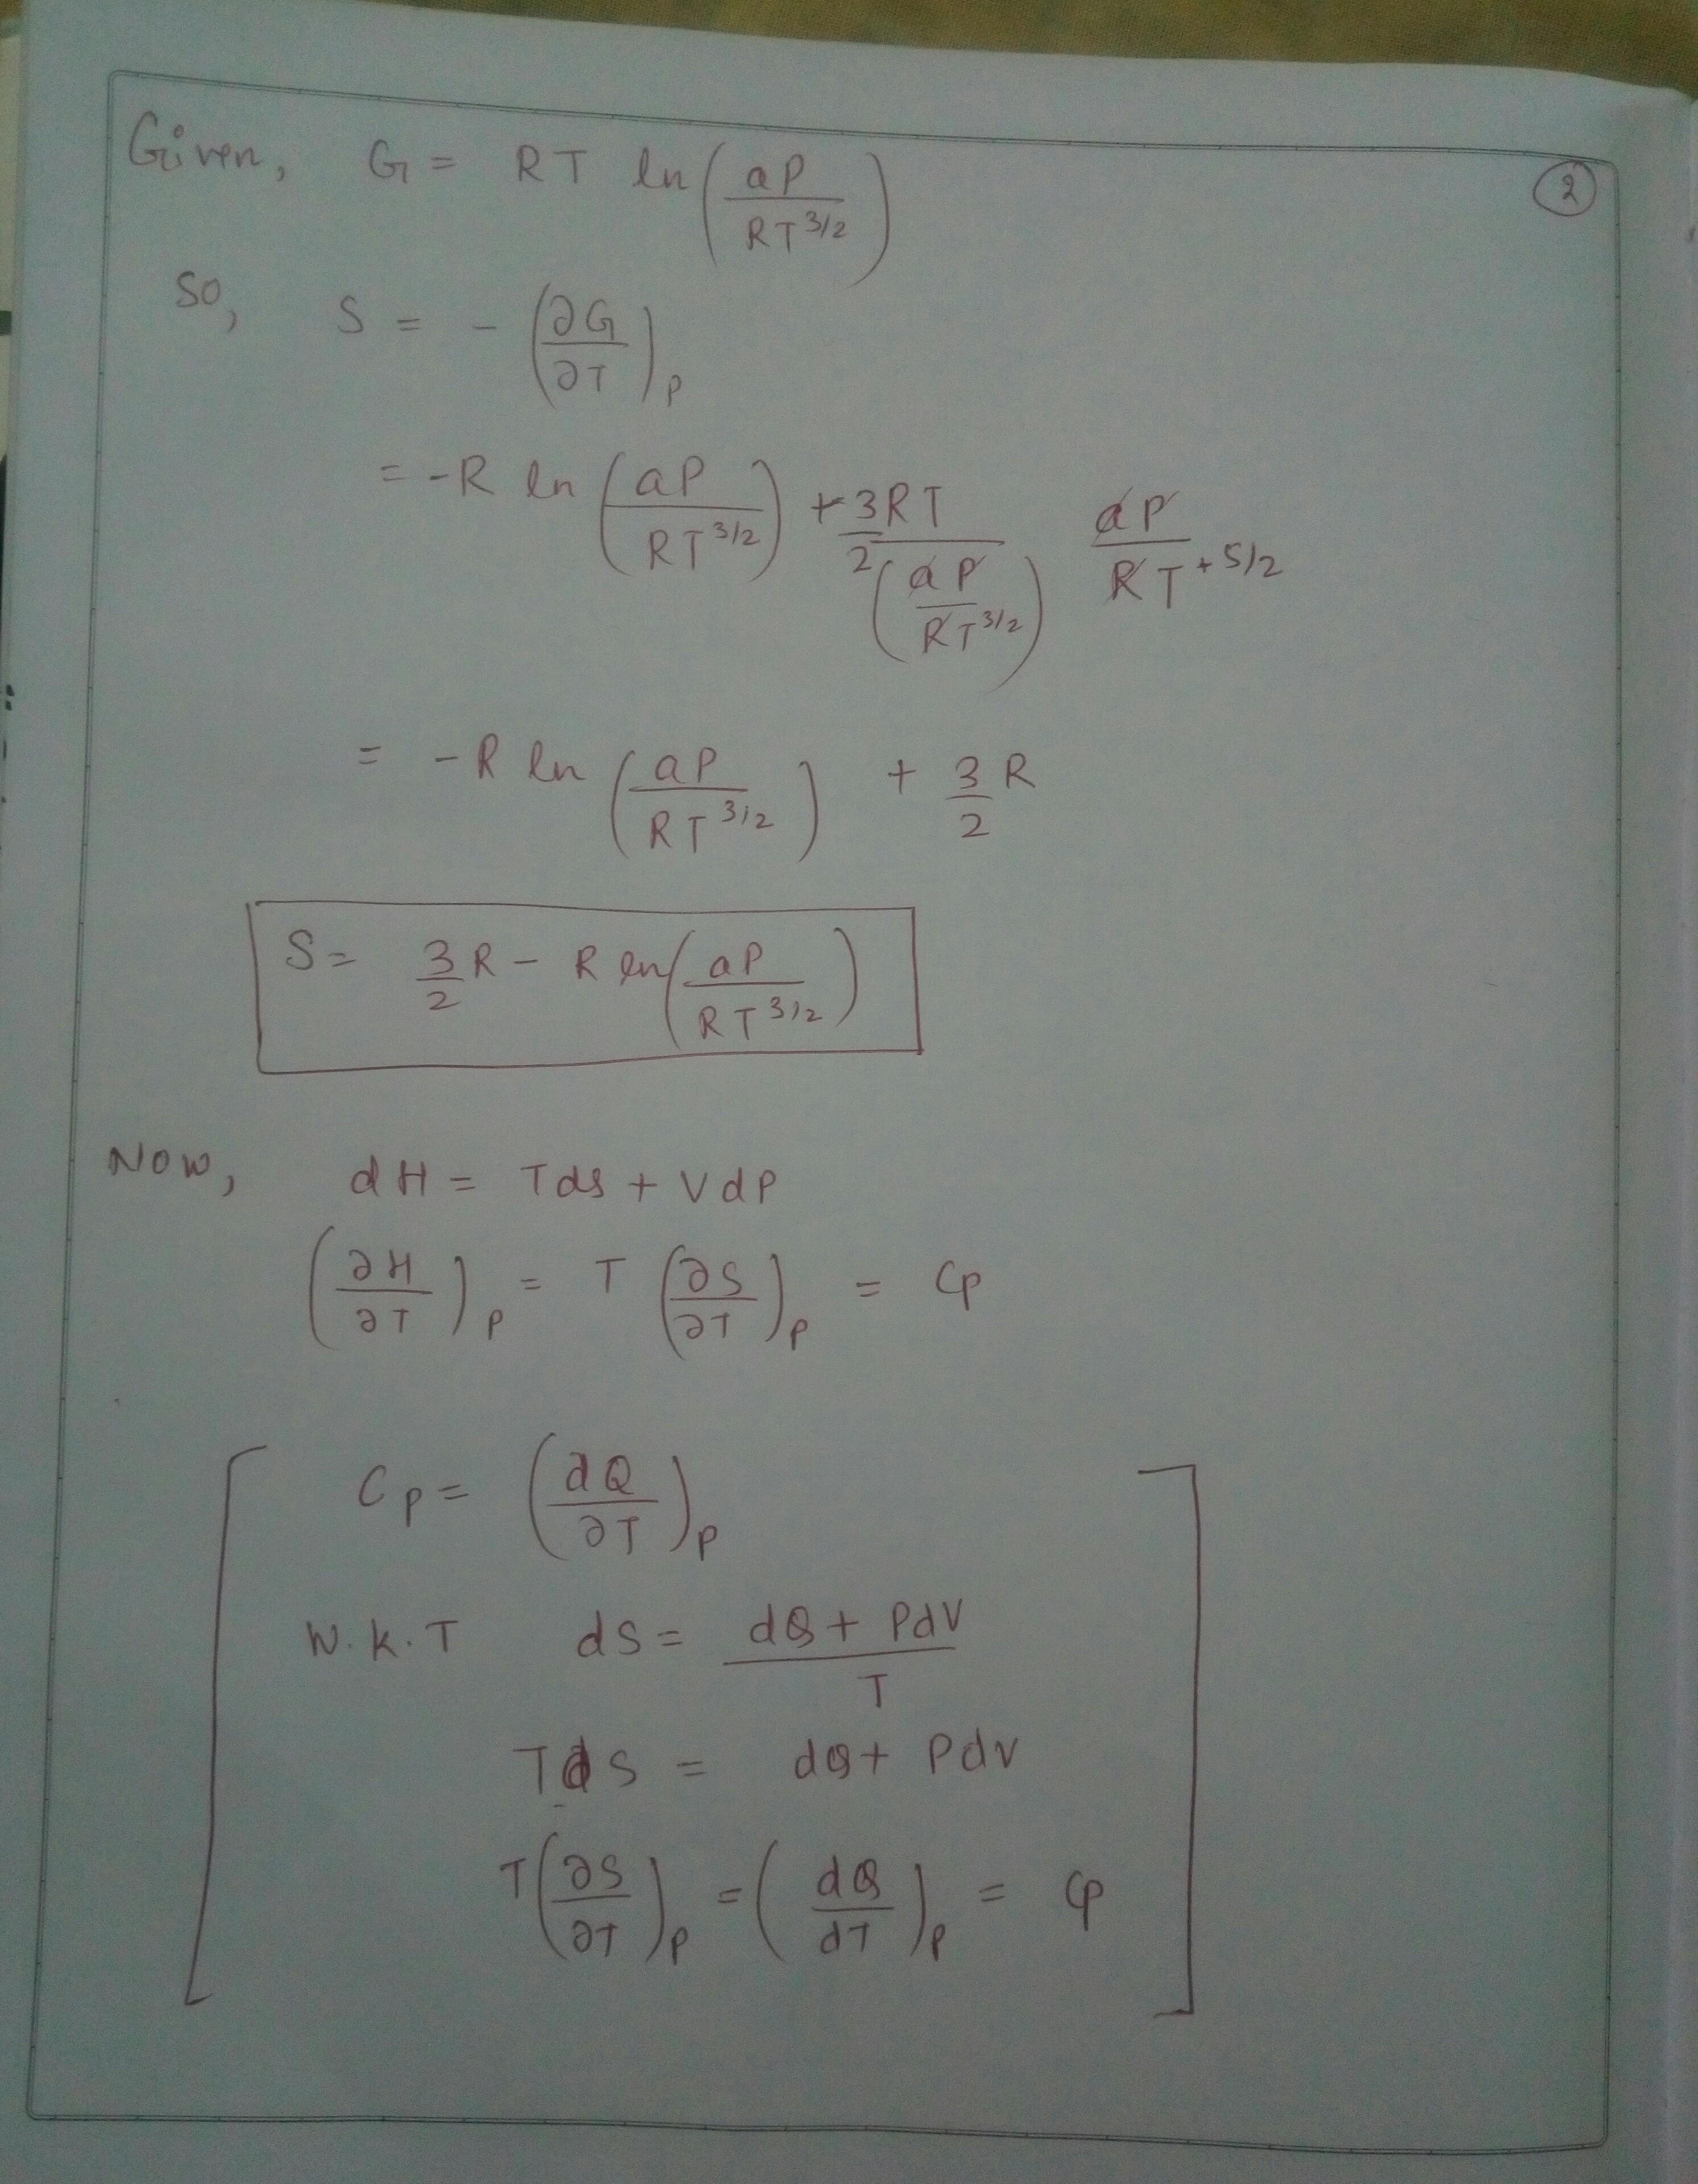 ②
Given, G = RT ln(aP / RT^3/2)
So, S = - (∂G/∂T)_P
= -R ln(aP / RT^3/2) + 3RT / 2(aP / RT^3/2) aP / RT^+5/2
= -R ln(aP / RT^3/2) + 3/2 R
S = 3/2 R - R ln(aP / RT^3/2)
Now, dH = Tds + VdP
(∂H/∂T)_P = T (∂S/∂T)_P = Cp
[ Cp = (dQ/∂T)_P
W.K.T dS = dQ + PdV / T
TdS = dQ + PdV
T(∂S/∂T)_P = (dQ/dT)_P = Cp ]